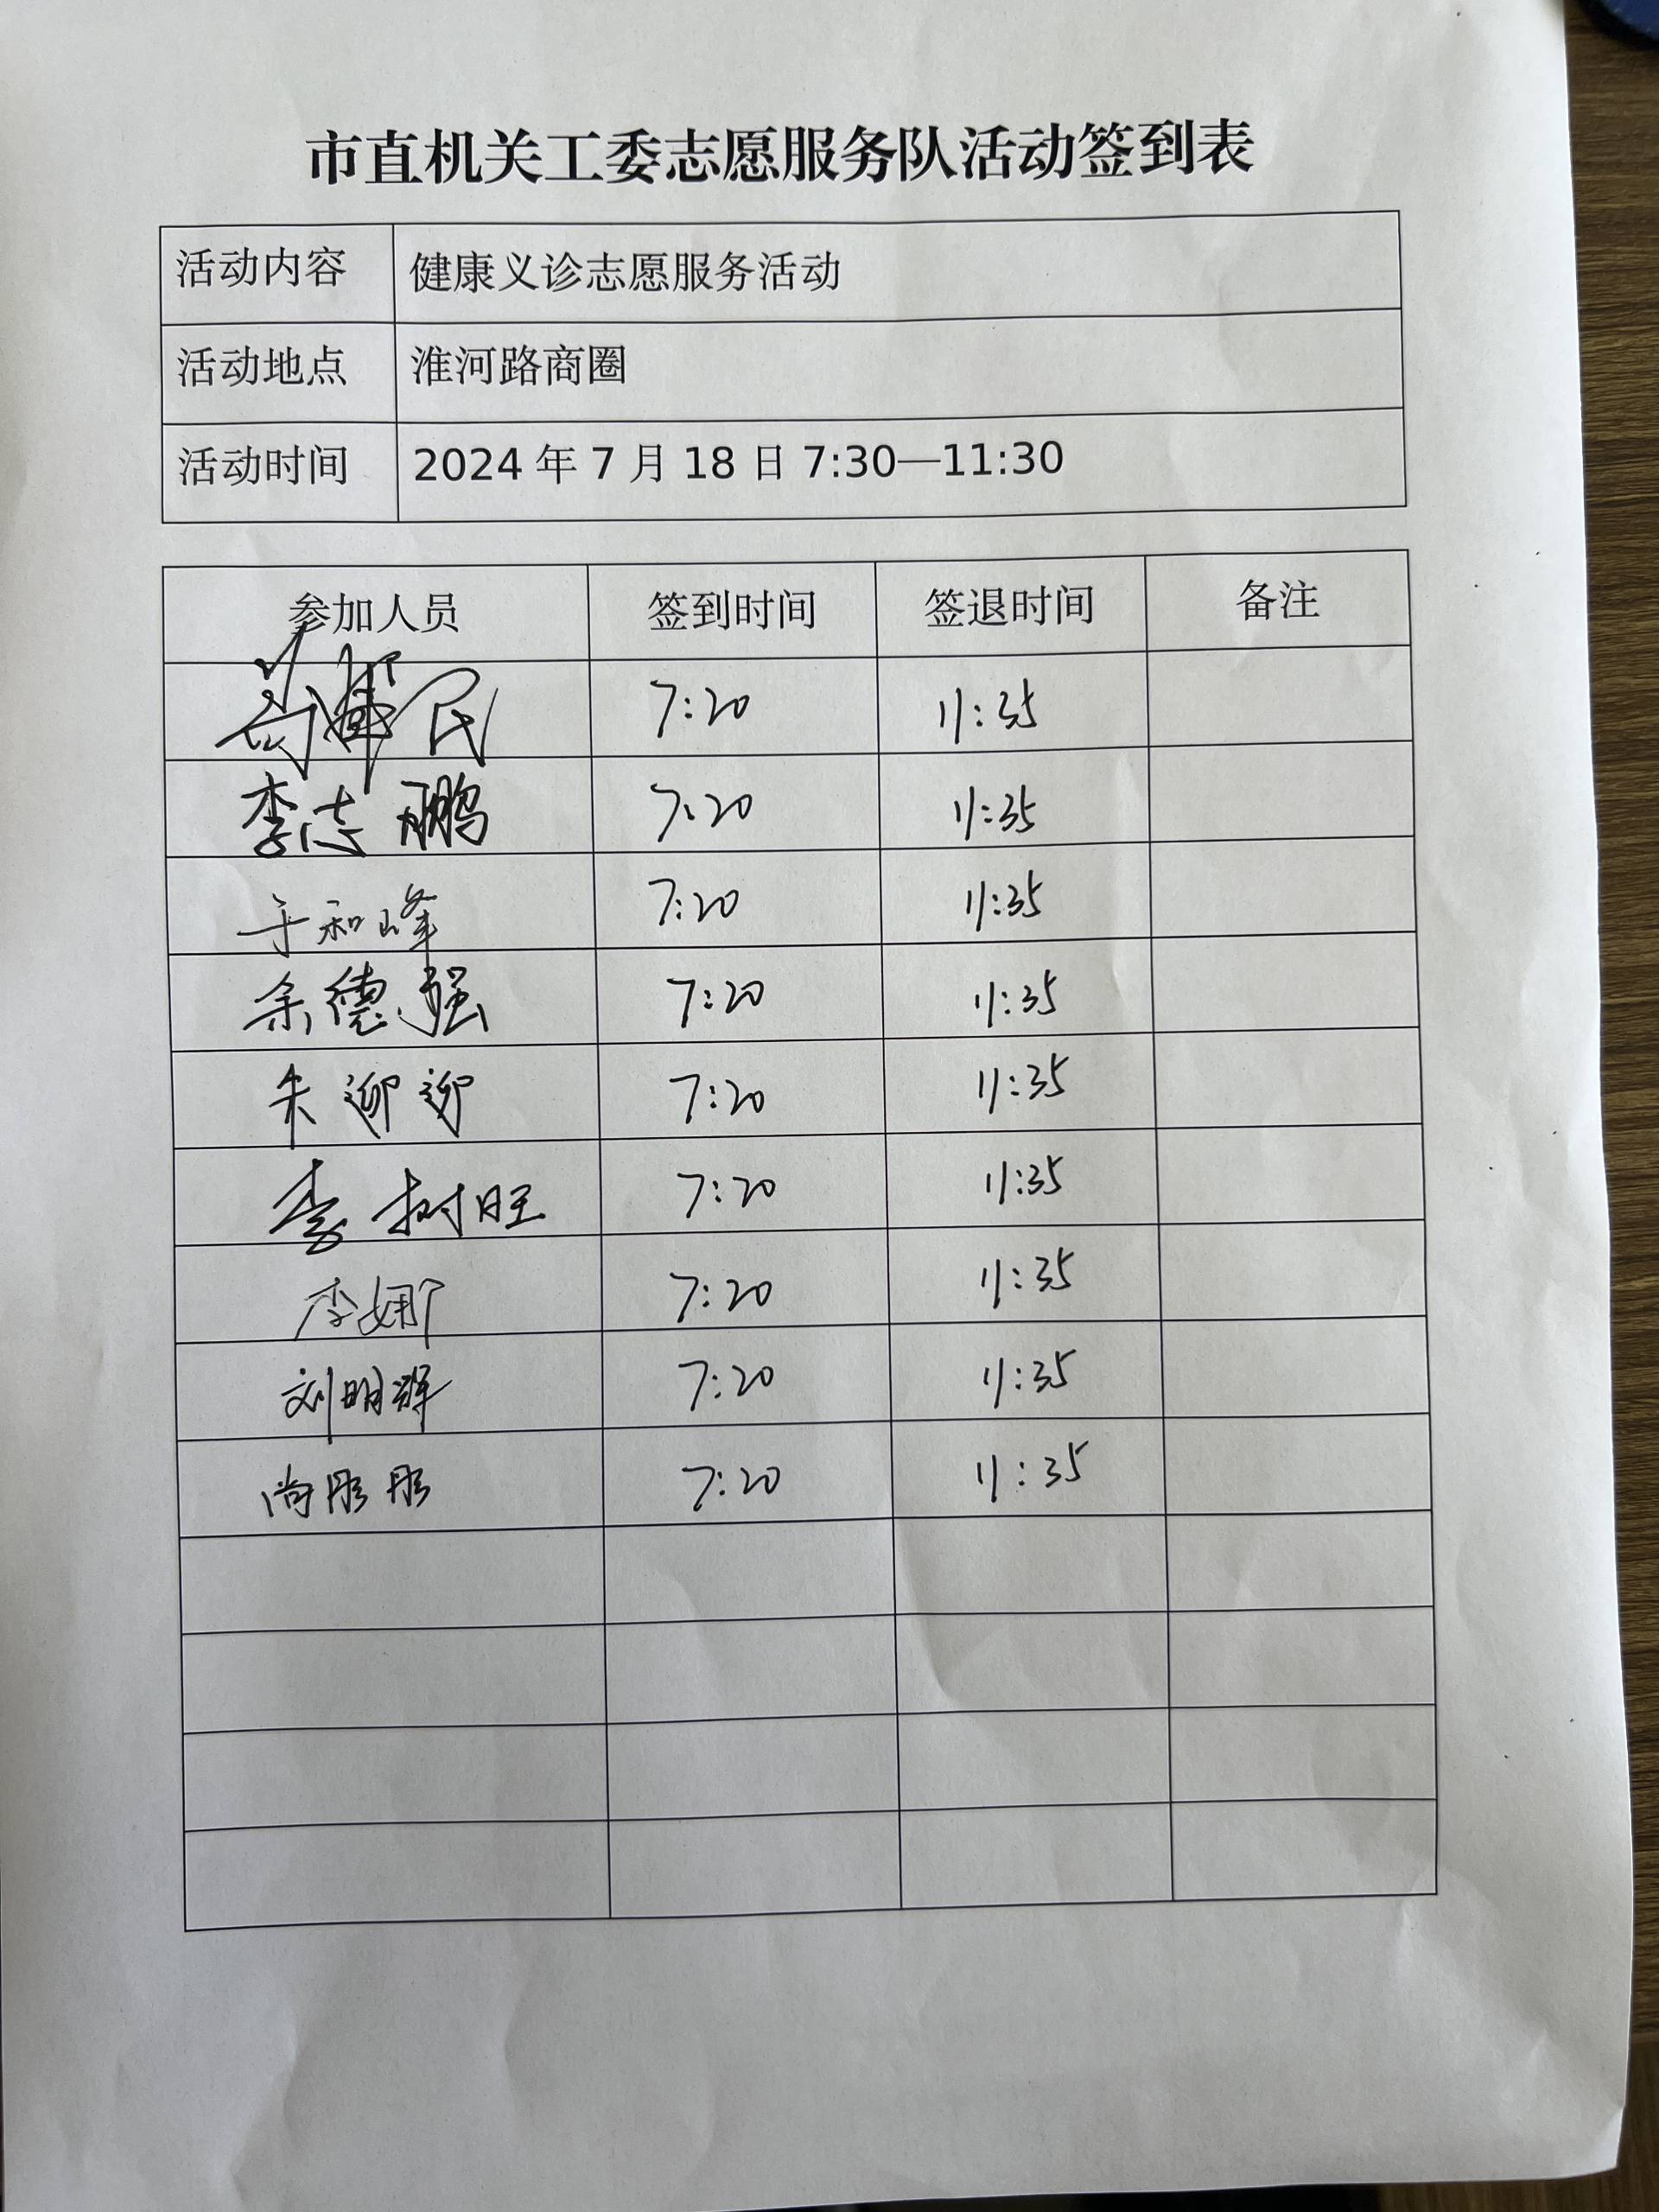 市直机关工委志愿服务队活动签到表
活动内容 健康义诊志愿服务活动
活动地点 淮河路商圈
活动时间 2024 年 7 月 18 日 7:30—11:30
参加人员 签到时间 签退时间 备注
7:20 11:35
李志鹏 7:20 11:35
于和峰 7:20 11:35
余德强 7:20 11:35
朱迎迎 7:20 11:35
李树旺 7:20 11:35
李娜 7:20 11:35
刘明辉 7:20 11:35
尚彤彤 7:20 11:35